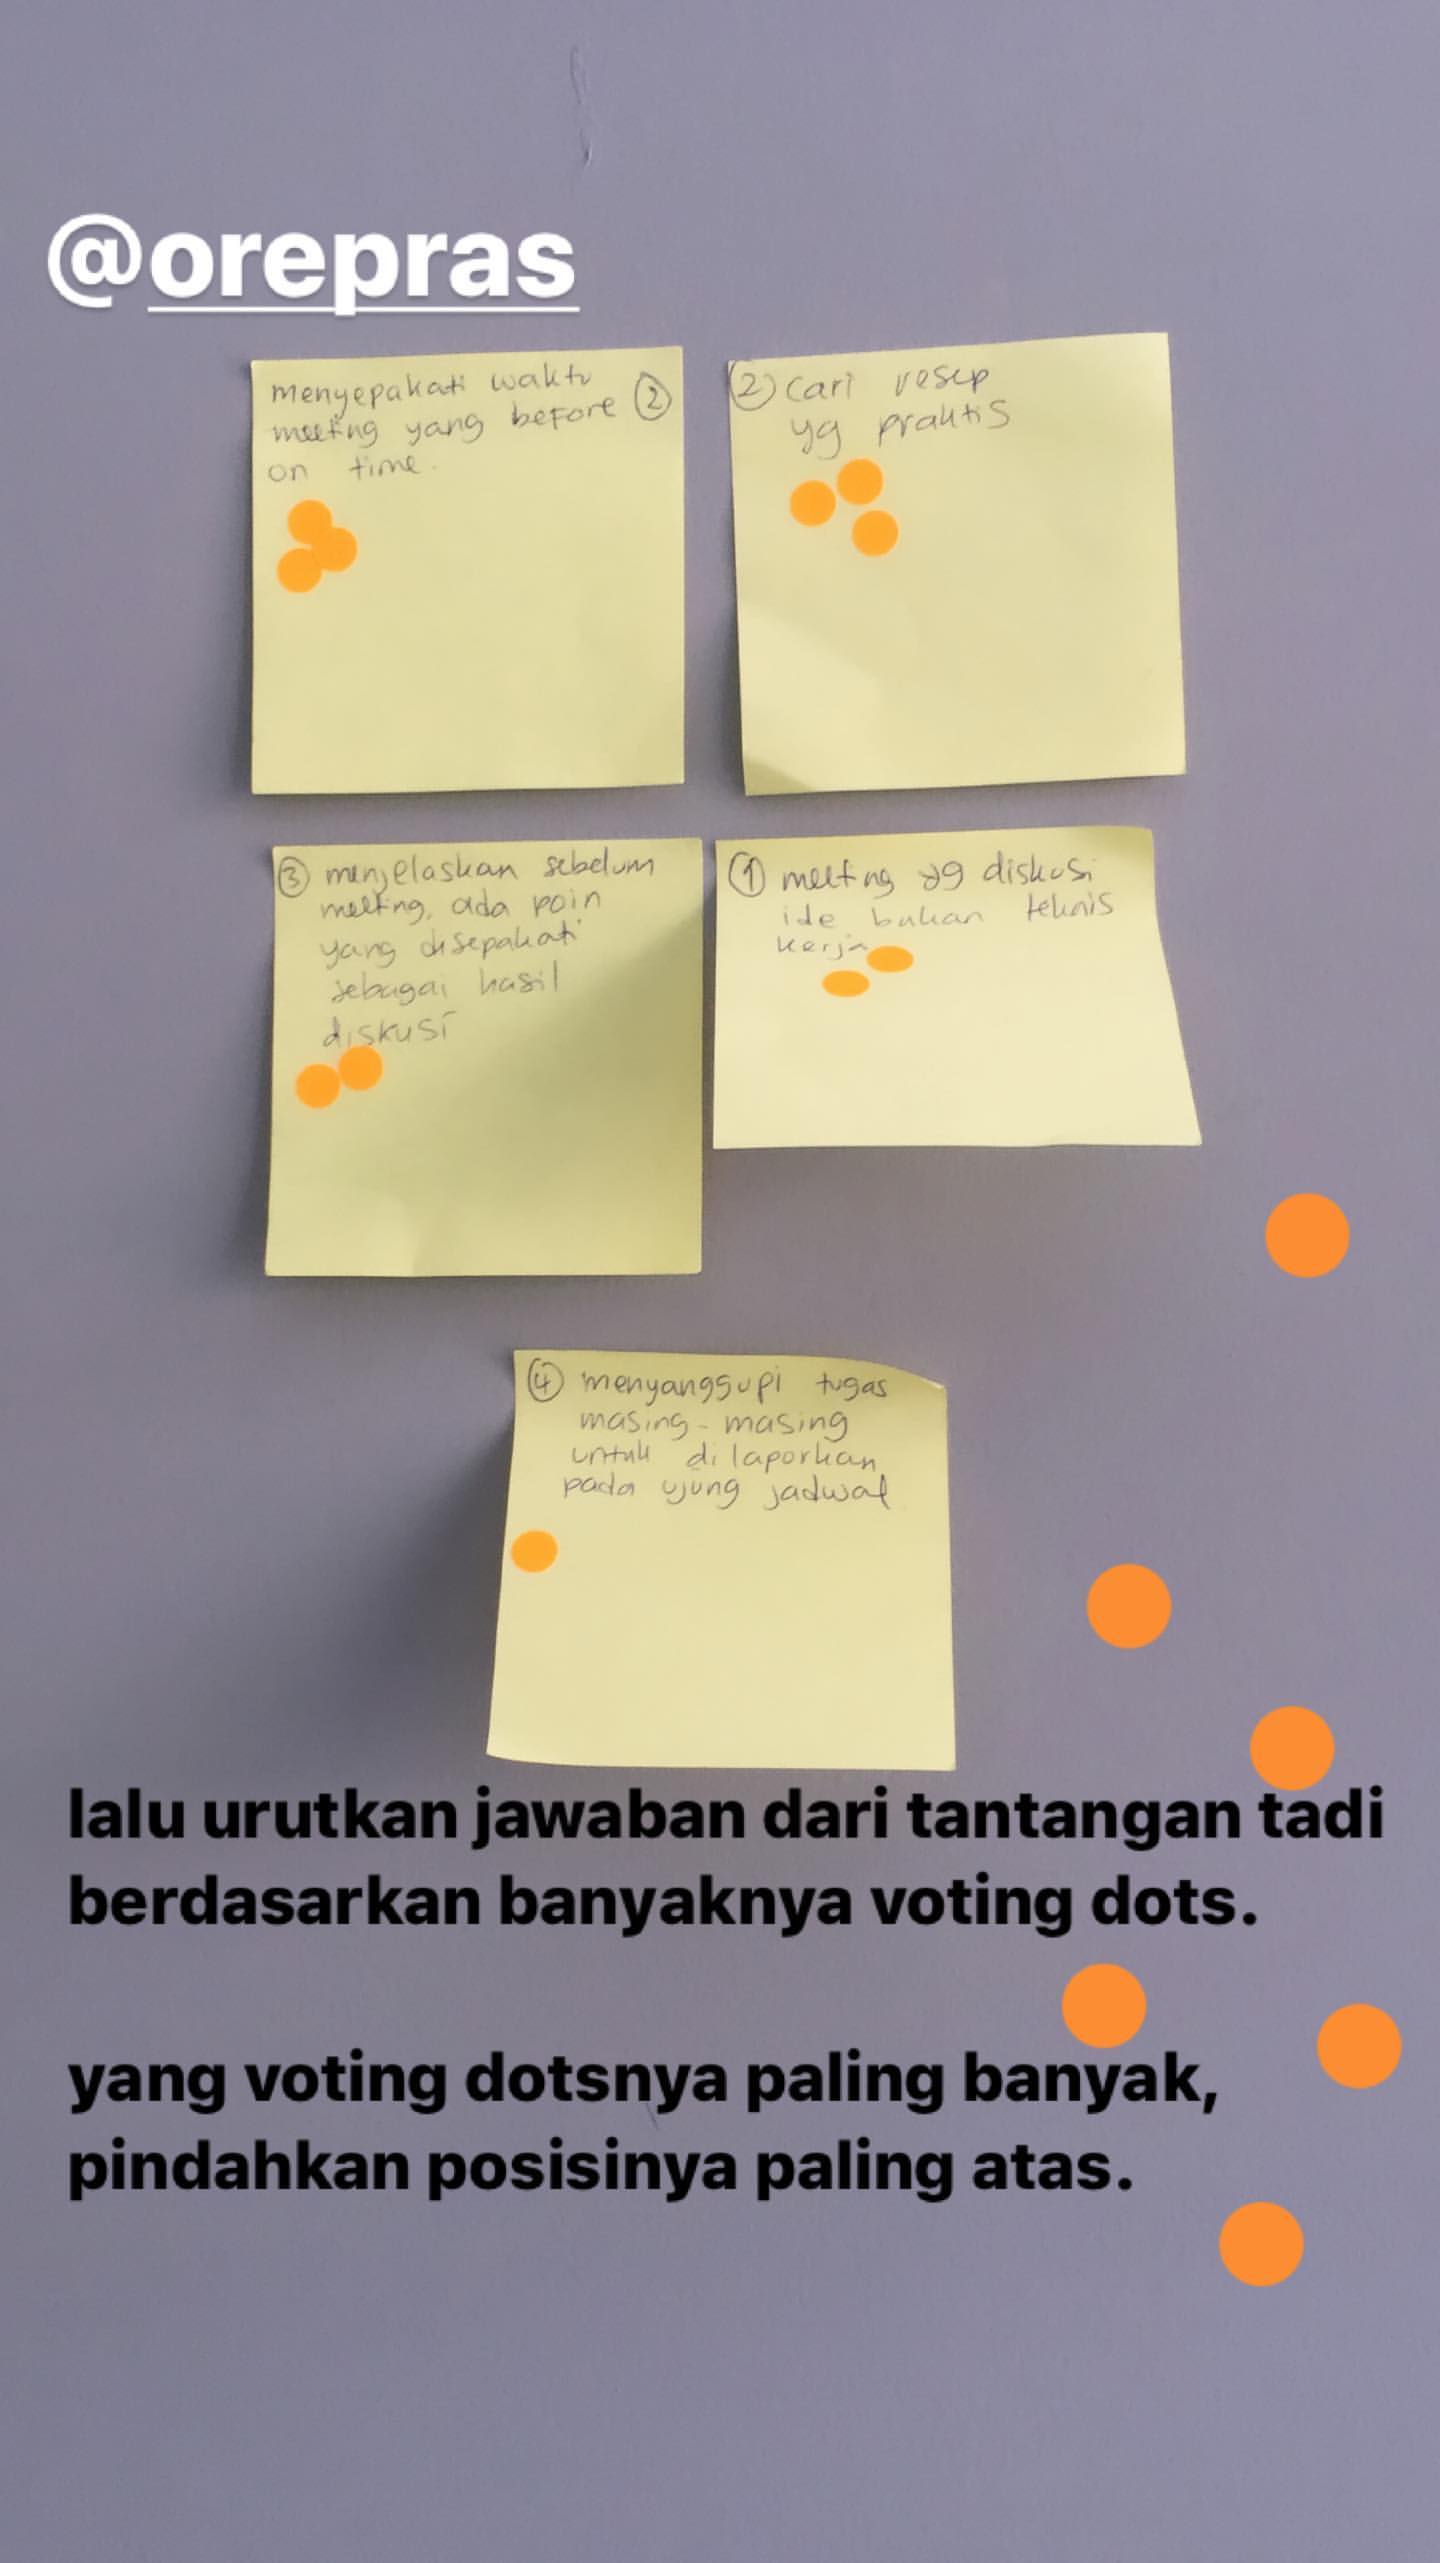 @orepras
menyepakati waktu
meeting yang before ②
on time.
② cari resep
yg praktis
③ menjelaskan sebelum
meeting, ada poin
yang disepakati
sebagai hasil
diskusi
① meeting yg diskusi
ide bukan teknis
kerja
④ menyanggupi tugas
masing-masing
untuk dilaporkan
pada ujung jadwal
lalu urutkan jawaban dari tantangan tadi
berdasarkan banyaknya voting dots.
yang voting dotsnya paling banyak,
pindahkan posisinya paling atas.